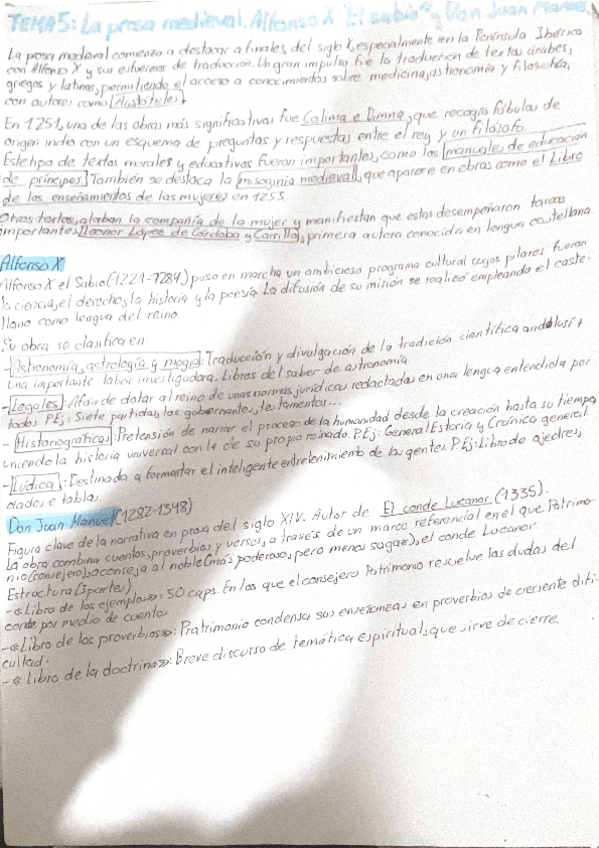 TEMA 5: La prosa medieval. Alfonso X "El sabio" y Don Juan Manuel
La prosa medieval comienza a destacar a finales del siglo X, especialmente en la Península Ibérica
con Alfonso X y sus esfuerzos de traducción. Un gran impulso fue la traducción de textos árabes,
griegos y latinos, permitiendo el acceso a conocimientos sobre medicina, astronomía y filosofía,
con autores como Aristóteles.
En 1251, una de las obras más significativas fue Calima e Dimna, que recogía fábulas de
origen indio con un esquema de preguntas y respuestas entre el rey y un filósofo.
Este tipo de textos morales y educativos fueron importantes, como los manuales de educación
de príncipes. También se destaca la misoginia medieval, que aparece en obras como el Libro
de los enseñamientos de las mujeres en 1253.
Otros textos, alaban la compañía de la mujer y manifiestan que estas desempeñaron tareas
importantes, Leonor López de Córdoba y Carrillo, primera autora conocida en lengua castellana.
Alfonso X
Alfonso X el Sabio (1221-1284) puso en marcha un ambicioso programa cultural cuyos pilares fueron
la ciencia, el derecho, la historia y la poesía. La difusión de su misión se realizó empleando el caste-
llano como lengua del reino.
Su obra se clasifica en:
- Astronomía, astrología y magia: Traducción y divulgación de la tradición científica andalusí +
una importante labor investigadora. Libros del saber de astronomía.
- Legales: Afán de dotar al reino de unas normas jurídicas redactadas en una lengua entendida por
todos. PEj: Siete partidas, los gobernantes, testamentos...
- Historiográficas: Pretensión de narrar el proceso de la humanidad desde la creación hasta su tiempo,
uniendo la historia universal con la de su propio reinado. P.Ej: General Estoria y Crónica general
- Lúdica: Destinada a fomentar el inteligente entretenimiento de las gentes. P.Ej: Libro de ajedrez,
dados e tablas.
Don Juan Manuel (1282-1348)
Figura clave de la narrativa en prosa del siglo XIV. Autor de El conde Lucanor (1335).
La obra combina cuentos, proverbios y versos, a través de un marco referencial en el que Patrimo-
nio (consejero), aconseja al noble (más poderoso, pero menos sagaz), el conde Lucanor.
Estructura (3 partes)
- «Libro de los ejemplos»: 50 caps. En los que el consejero Patrimonio resuelve las dudas del
conde por medio de cuentos.
- «Libro de los proverbios»: Pratrimonio condensa sus enseñanzas en proverbios de creciente difi-
cultad.
- «Libro de la doctrina»: Breve discurso de temática espiritual, que sirve de cierre.